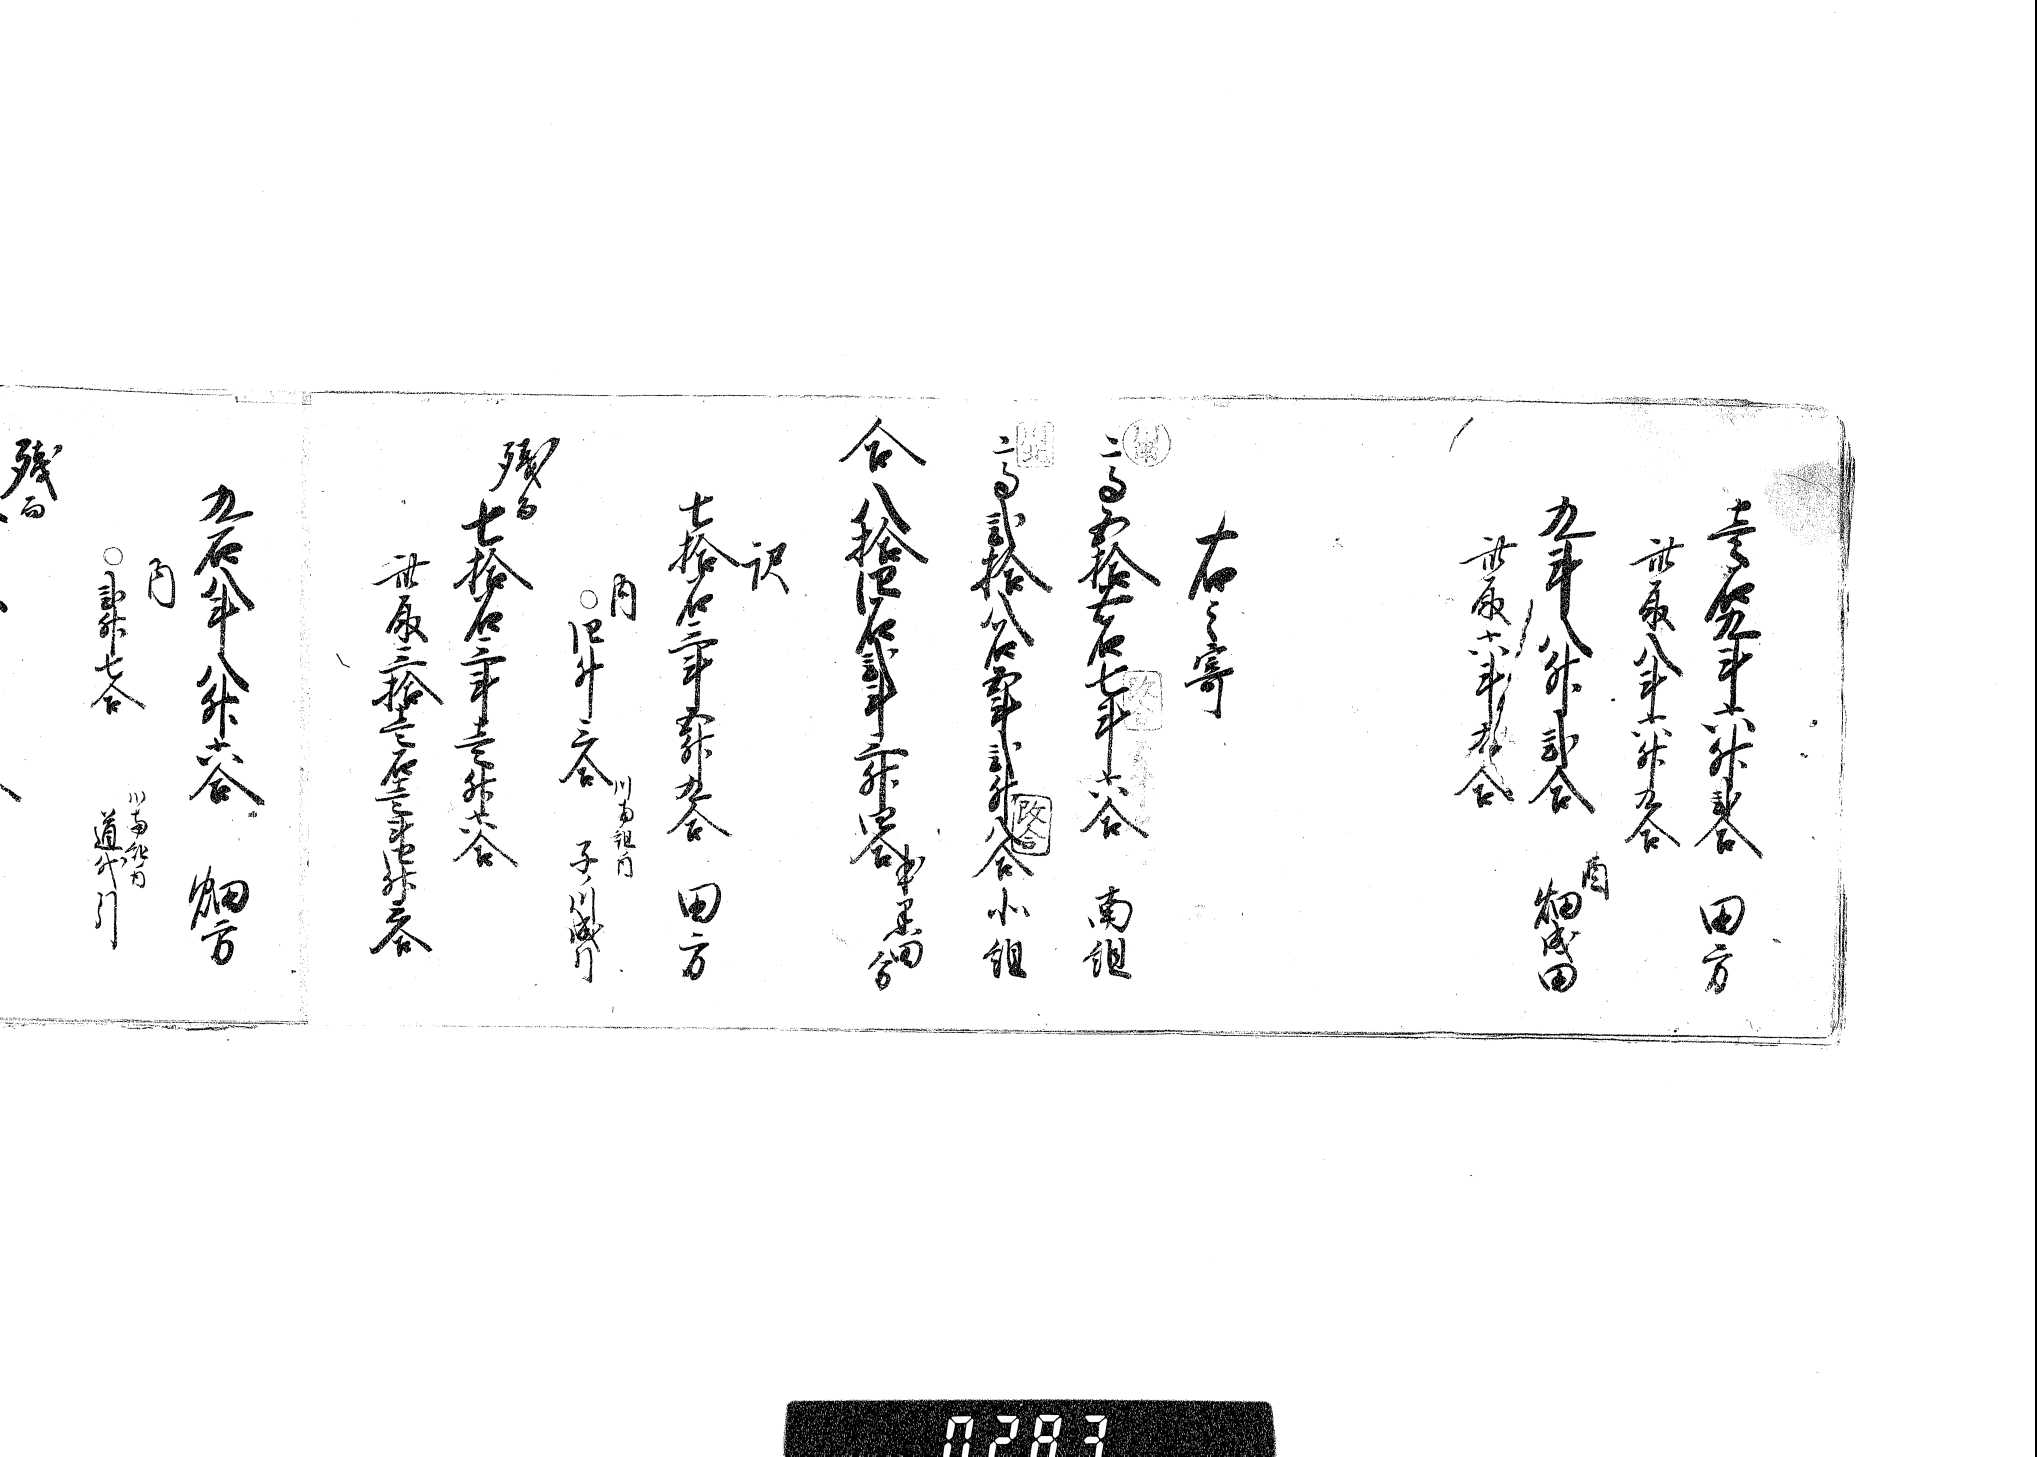 壱石九斗六升弐合 田方
此取八斗六升九合
九斗八升弐合 酉畑成田
此取六斗九合
右之寄
一高五拾五石七斗六合 南組
一高弐拾八石四斗弐升八合 北組
改合
合八拾四石弐斗三升四合
訳
七拾石三斗五升九合 田方
内
○四升三合 川南組内 子ノ川成引
残而
七拾石三斗壱升六合
此取三拾壱石壱斗四升三合
九石八斗八升六合 畑方
内
○弐升七合 道代引
残而
0283